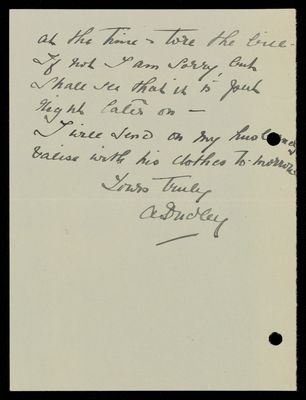 at the time - tore the
If not I am sorry, but
shall see that it is put
right later on -
I will send on my husband's
valise with his clothes to-morrow
Yours truly
A Dudley